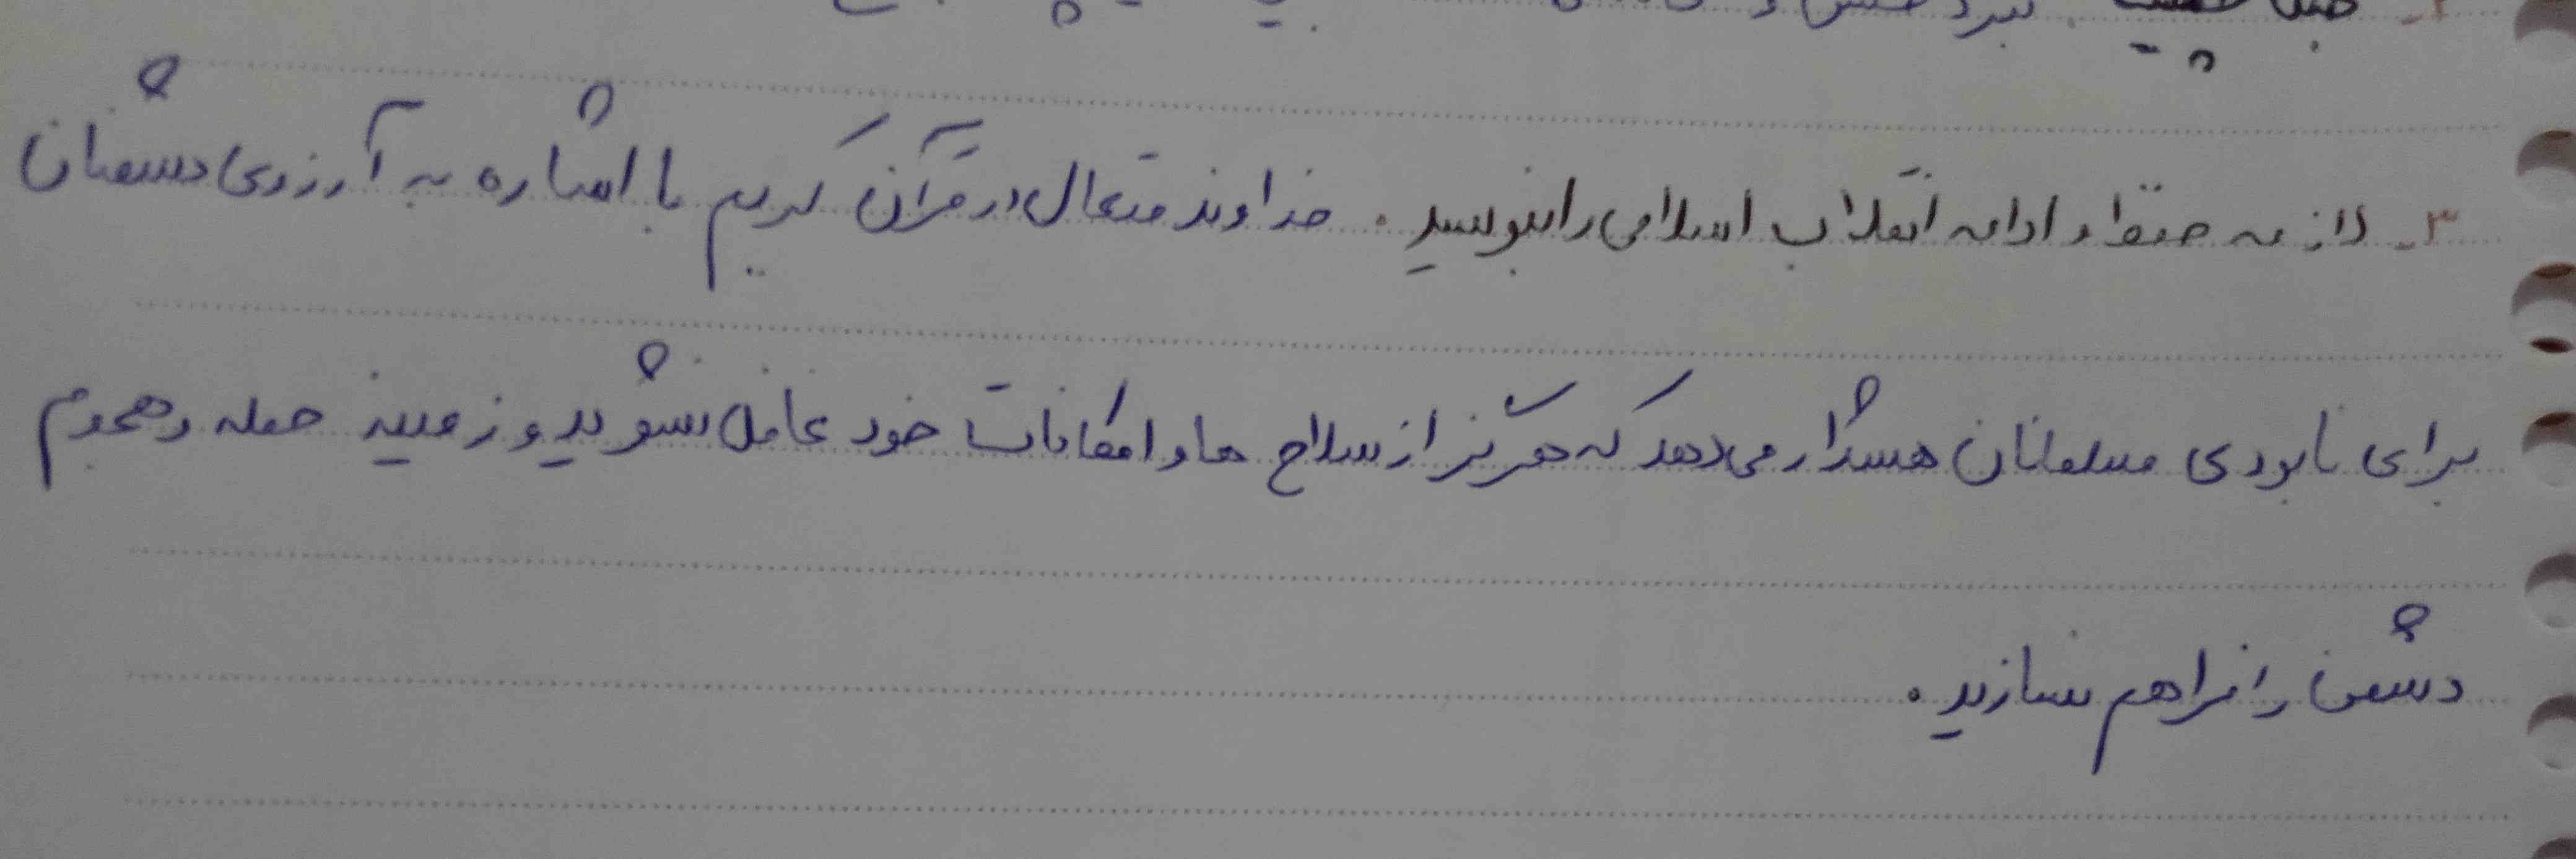 ۳- لازمه حفظ و ادامه انقلاب اسلامی را بنویسید. خداوند متعال در قرآن کریم با اشاره به آرزوی دشمنان
برای نابودی مسلمانان هشدار می دهد که هرگز از سلاح ها و امکانات خود غافل نشوید و زمینه حمله و هجوم
دشمن را فراهم نسازید.